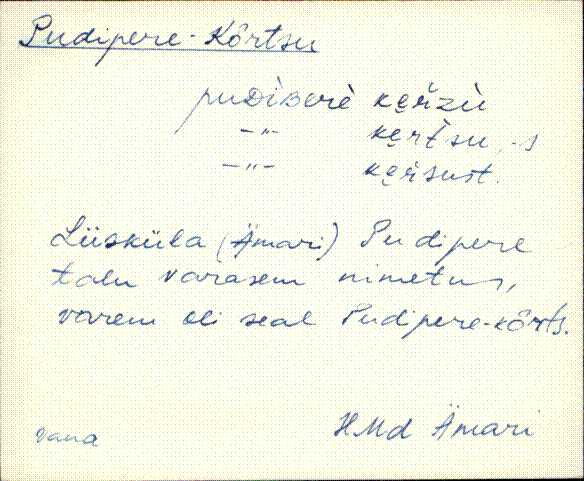 Pudipere-Kõrtsu
puDìBerè kẹřzù
-"- kẹrtsu, -s
-"- kẹřsust.
Liisküla (Ämari) Pudipere
talu varasem nimetus,
varem oli seal Pudipere-kõrts.
HMd Ämari
vana